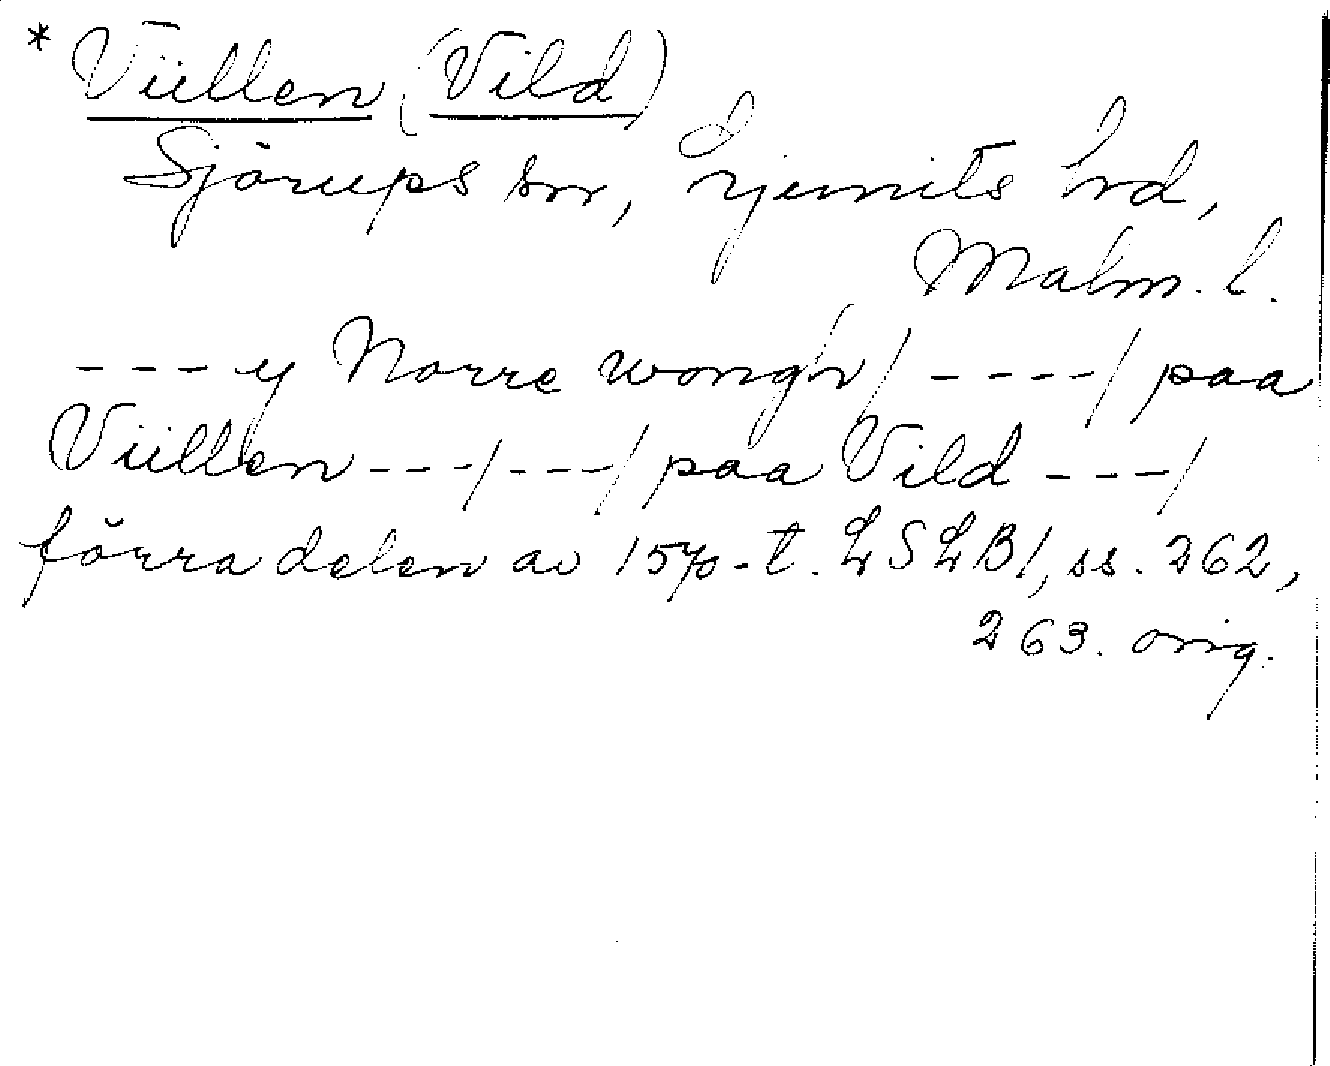 * Viillen (Vild)
Sjörups sn, Ljunits hd,
Malm. l.
--- y Norre wong'n / ---- / paa
Viillen --- / --- / paa Vild --- /
förra delen av 1570-t. LSLB1, ss. 262,
263. orig.